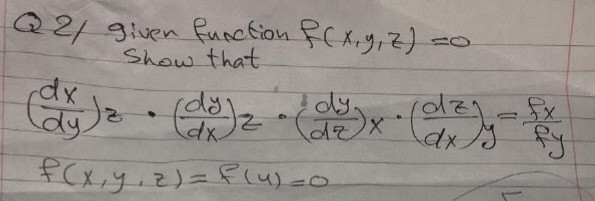 Q2/ given function f(x,y,z)=0
Show that
(dx/dy)z · (dy/dx)z · (dy/dz)x · (dz/dx)y = fx/fy
f(x,y,z)=f(u)=0